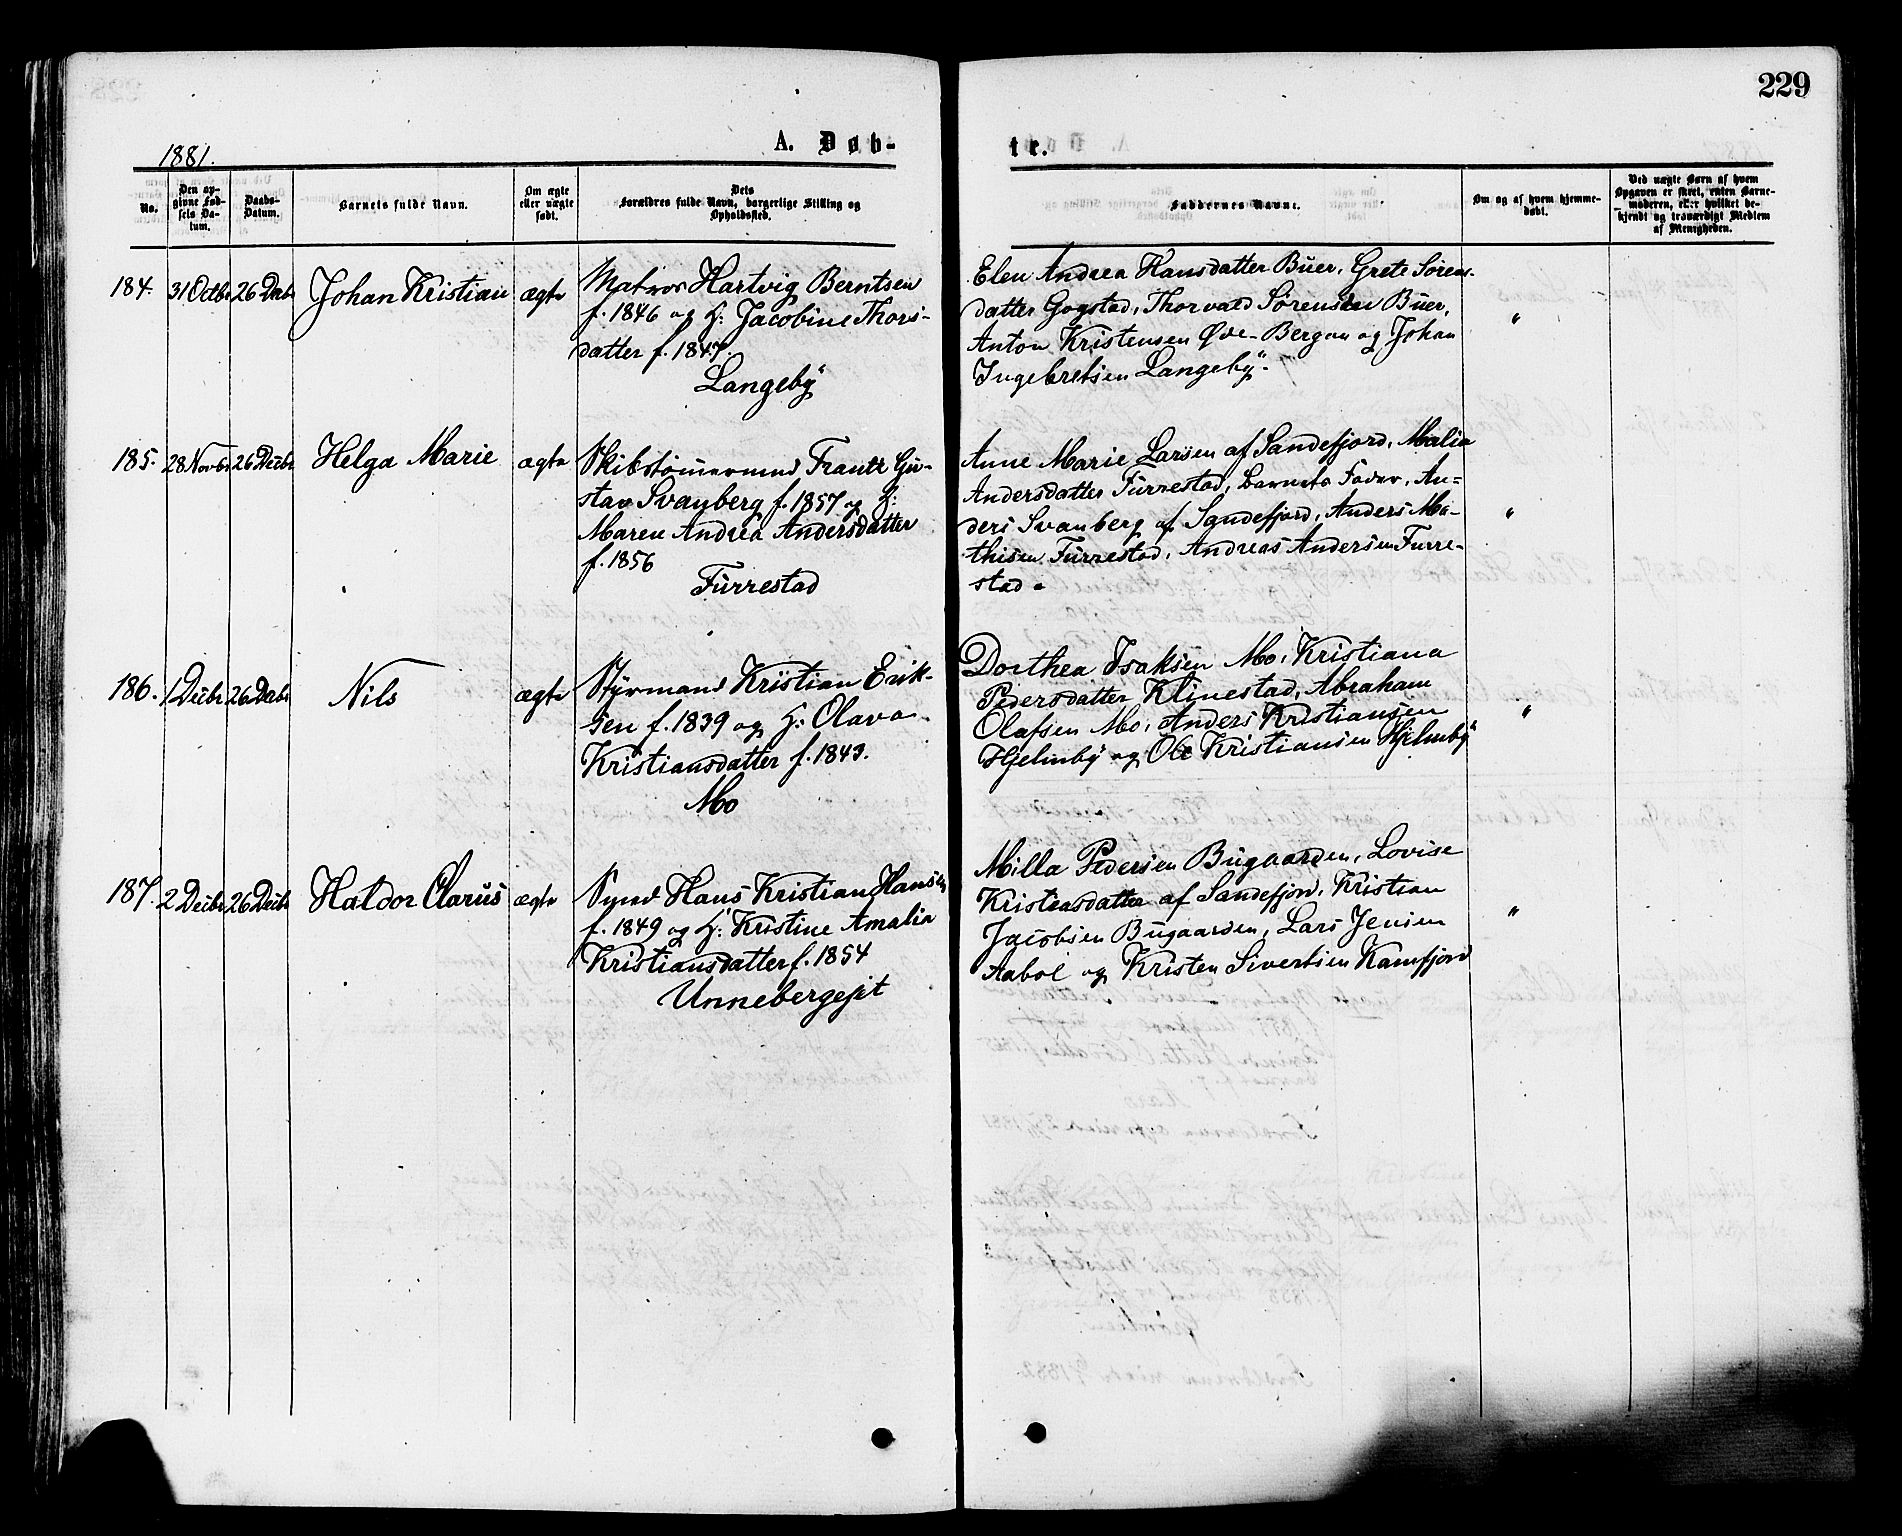 229
1881.
A. Døb-
te.
No.
Den op-
givne Fød-
sels Da-
tum.
Daabs-
Datum.
Barnets fulde Navn.
Om ægte
eller uægte
født.
Dets
Forældres fulde Navn, borgerlige Stilling og
Opholdssted.
Faddernes Navne.
Om og af hvem hjemme-
døbt.
Ved uægte Børn af hvem
Opgaven er skeet, enten Barne-
moderen, eller hvilket be-
kjendt og troværdigt Medlem
af Menigheden.
184. 31 Octbr 26 Decbr Johan Kristian ægte
Matros Hartvig Berntsen
f. 1846 og H: Jacobine Thors-
datter f. 1847.
Langeby
Elen Andrea Hansdatter Buer, Grete Sørens-
datter Gogstad, Thorvald Sørensen Buer,
Anton Kristensen Øvre-Bergan og Johan
Ingebretsen Langeby.
"
185. 28 Novbr 26 Decbr Helga Marie ægte
Skibstømmermand Frantz Gu-
stav Svanberg f. 1857 og H:
Maren Andrea Andersdatter
f. 1856
Furrestad
Anne Marie Larsen af Sandefjord, Malia
Andersdatter Furrestad, Barnets Fader, An-
ders Svanberg af Sandefjord, Anders Ma-
thisen Furrestad, Andreas Andersen Furre-
stad.
"
186. 1 Decbr 26 Decbr Nils ægte
Styrmand Kristian Erik-
sen f. 1839 og H: Olava
Kristiansdatter f. 1843.
Mo
Dorthea Isaksen Mo, Kristiana
Pedersdatter Klinestad, Abraham
Olafsen Mo, Anders Kristiansen
Hjelmby og Ole Kristiansen Hjelmby
"
187. 2 Decbr 26 Decbr Haldor Clarus ægte
Hans Kristian Hansen
f. 1849 og H: Kristine Amalia
Kristiansdatter f. 1854
Unnebergejet
Milla Pedersen Bugaarden, Lovise
Kristensdatter af Sandefjord, Kristian
Jacobsen Bugaarden, Lars Jensen
Aabol og Kristen Sivertsen Kamfjord
"